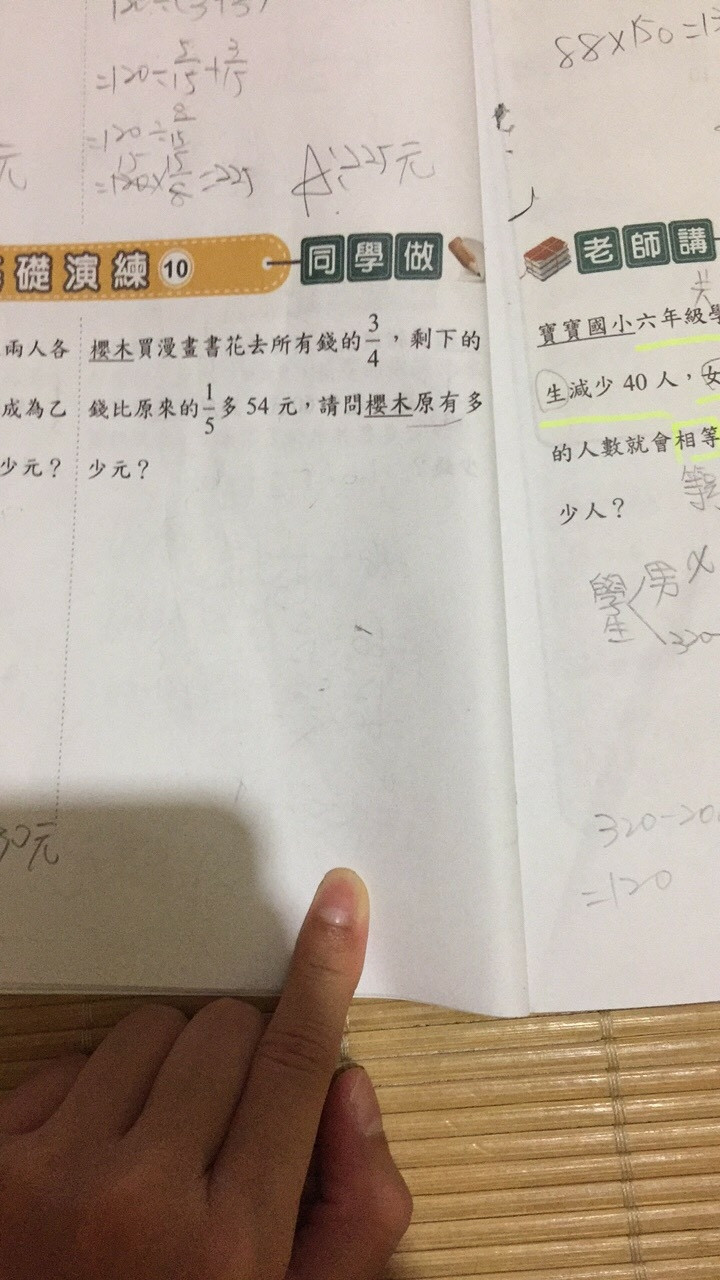 =120÷5/15+3/15
=120÷8/15
=120×15/8=225
A:225元
88×150=13
礎演練10
同學做
老師講
兩人各
成為乙
少元？
櫻木買漫畫書花去所有錢的3/4，剩下的
錢比原來的1/5多54元，請問櫻木原有多
少元？
30元
寶寶國小六年級學
生減少40人，女
的人數就會相等
少人？
學生
男 x
320-
320-20
=120